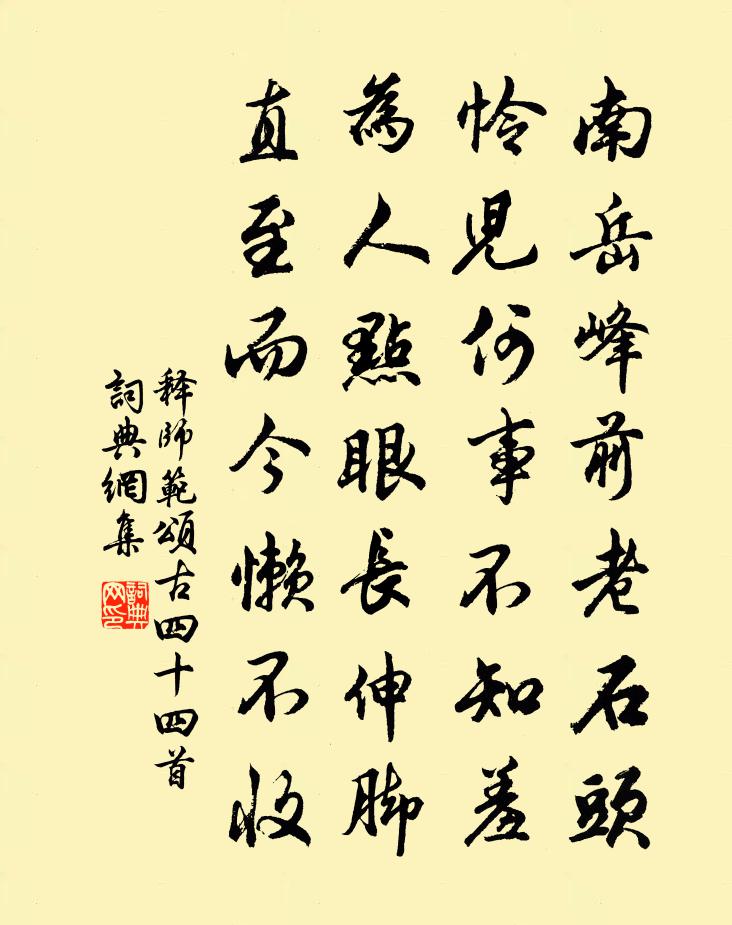 南岳峰前老石頭
怜児何事不知羞
為人點眼長伸脚
直至而今懶不收
釋師範頌古四十四首
詞典網集
詞典网印